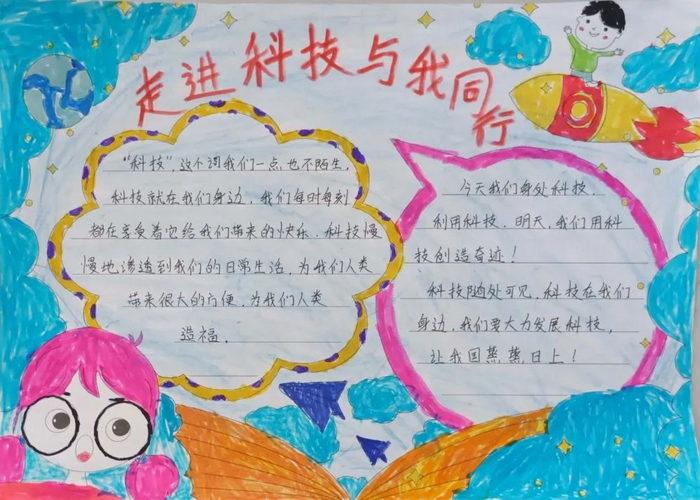 走进科技与我同行
"科技",这个词我们一点也不陌生,
科技就在我们身边,我们每时每刻
都在享受着它给我们带来的快乐.科技慢
慢地渗透到我们的日常生活,为我们人类
带来很大的方便,为我们人类
造福.
今天我们身处科技.
利用科技.明天,我们用科
技创造奇迹!
科技随处可见,科技在我们
身边,我们要大力发展科技,
让我国蒸蒸日上!